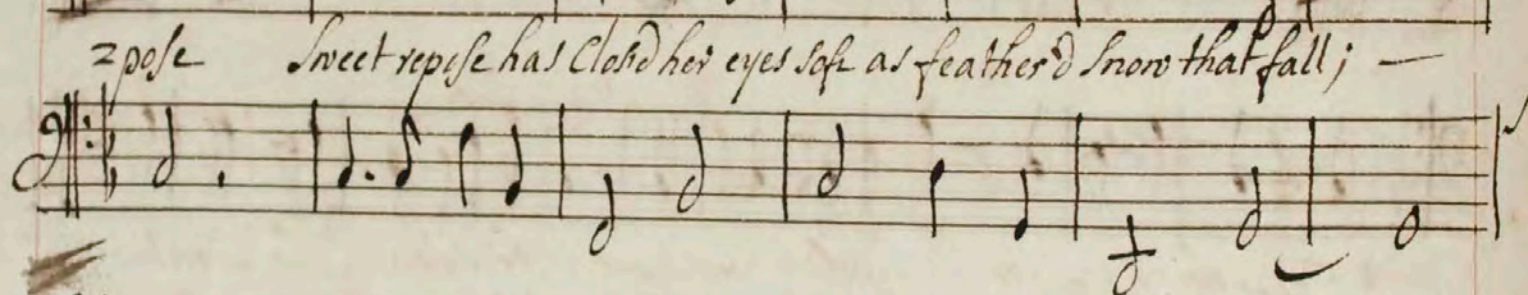 2pose Sweet repose has Clos'd her eyes soft as feather'd Snow that fall; —